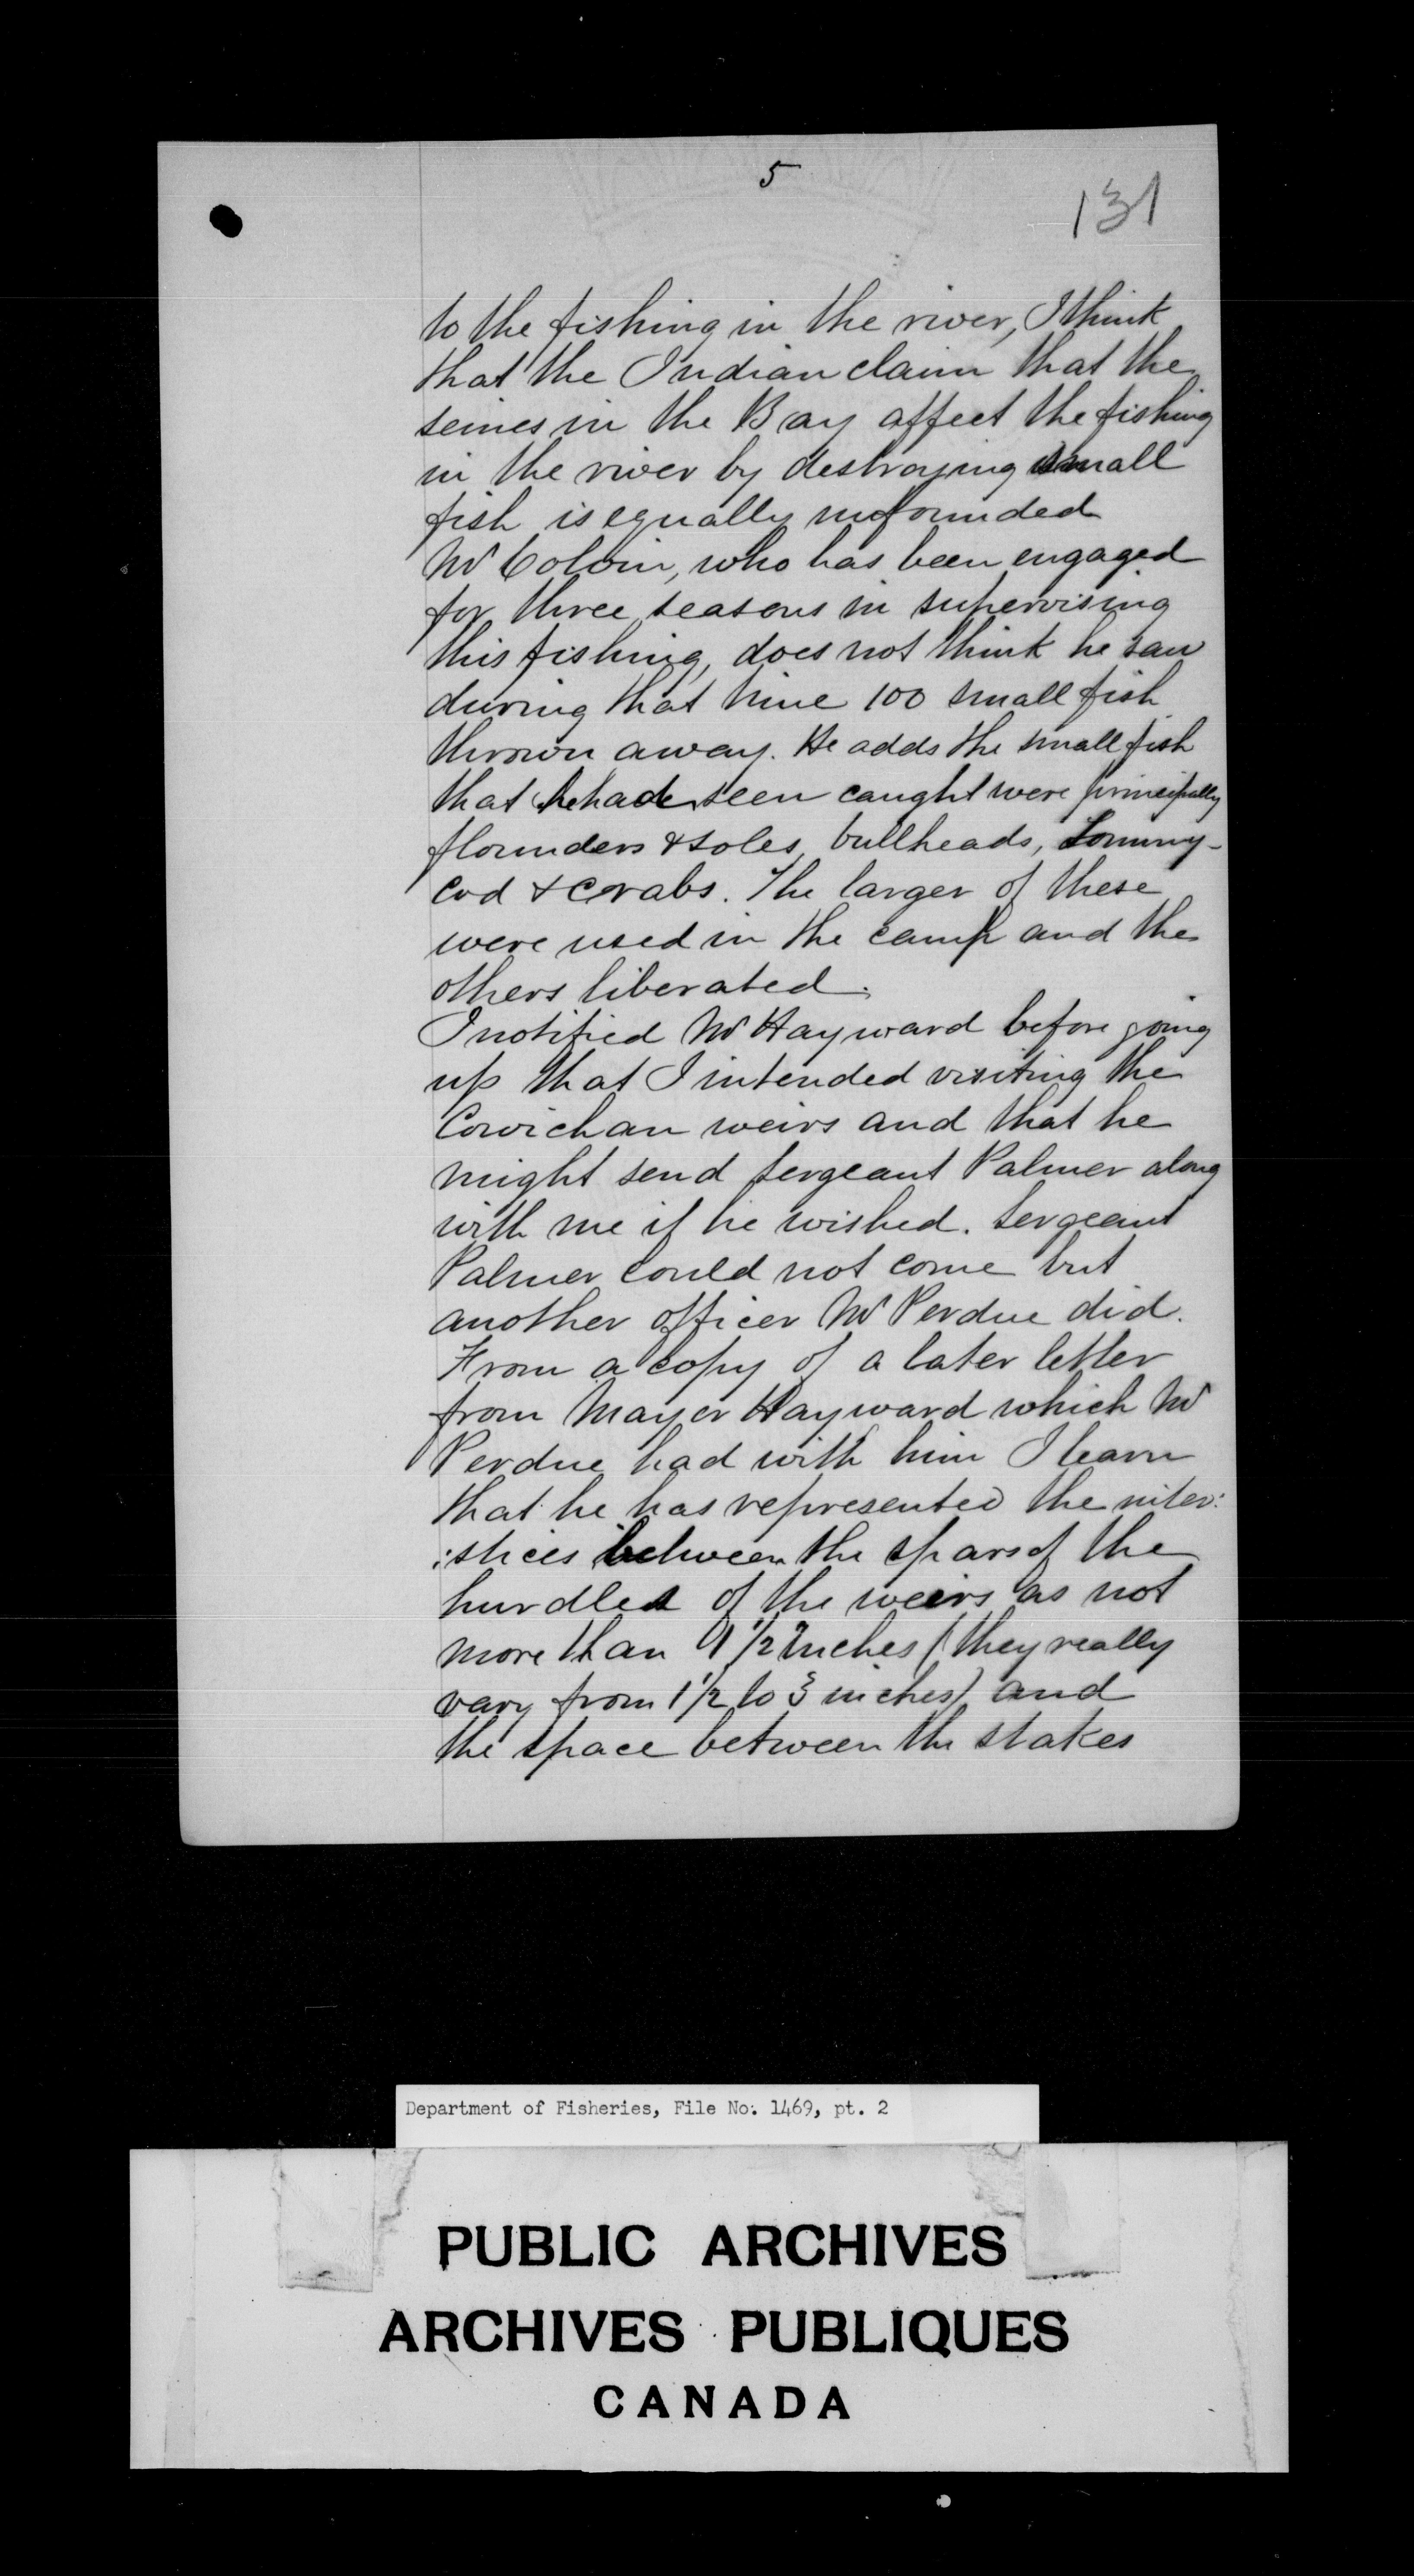 5
131
to the fishing in the river, I think
that the Indian claim that the
seines in the Bay affect the fishing
in the river by destroying small
fish is equally unfounded
Mr Colvin, who has been engaged
for three seasons in supervising
this fishing, does not think he saw
during that time 100 small fish
thrown away. He adds the small fish
that he had seen caught were principally
flounders & soles, bullheads, tommy-
cod & crabs. The larger of these
were used in the camp and the
others liberated.
I notified Mr Hayward before going
up that I intended visiting the
Cowichan weirs and that he
might send Sergeant Palmer along
with me if he wished. Sergeant
Palmer could not come but
another officer Mr Perdue did.
From a copy of a later letter
from Mayor Hayward which Mr
Perdue had with him I learn
that he has represented the inter:
:stices between the spars of the
hurdles of the weirs as not
more than 1 1/2 inches (they really
vary from 1 1/2 to 3 inches) and
the space between the stakes
Department of Fisheries, File No. 1469, pt. 2
PUBLIC ARCHIVES
ARCHIVES PUBLIQUES
CANADA